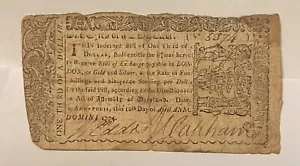 ONE THIRD of a DOLLAR
No 8574
THIS Indented Bill of One Third of a
DOLLAR, shall entitle the Bearer hereof to
Receive Bills of Exchange payable in LON-
DON, or Gold and Silver, at the Rate of Four
Shillings and Sixpence Sterling per Dollar
for the said Bill, according to the Directions
of an Act of Assembly of Maryland. Dated
in ANNAPOLIS, this 10th Day of April ANN.
DOMINI 1774.